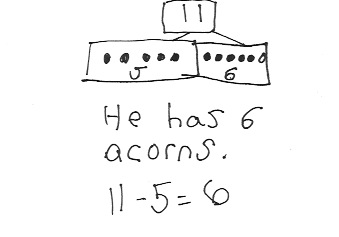 11
5 6
He has 6
acorns.
11-5=6